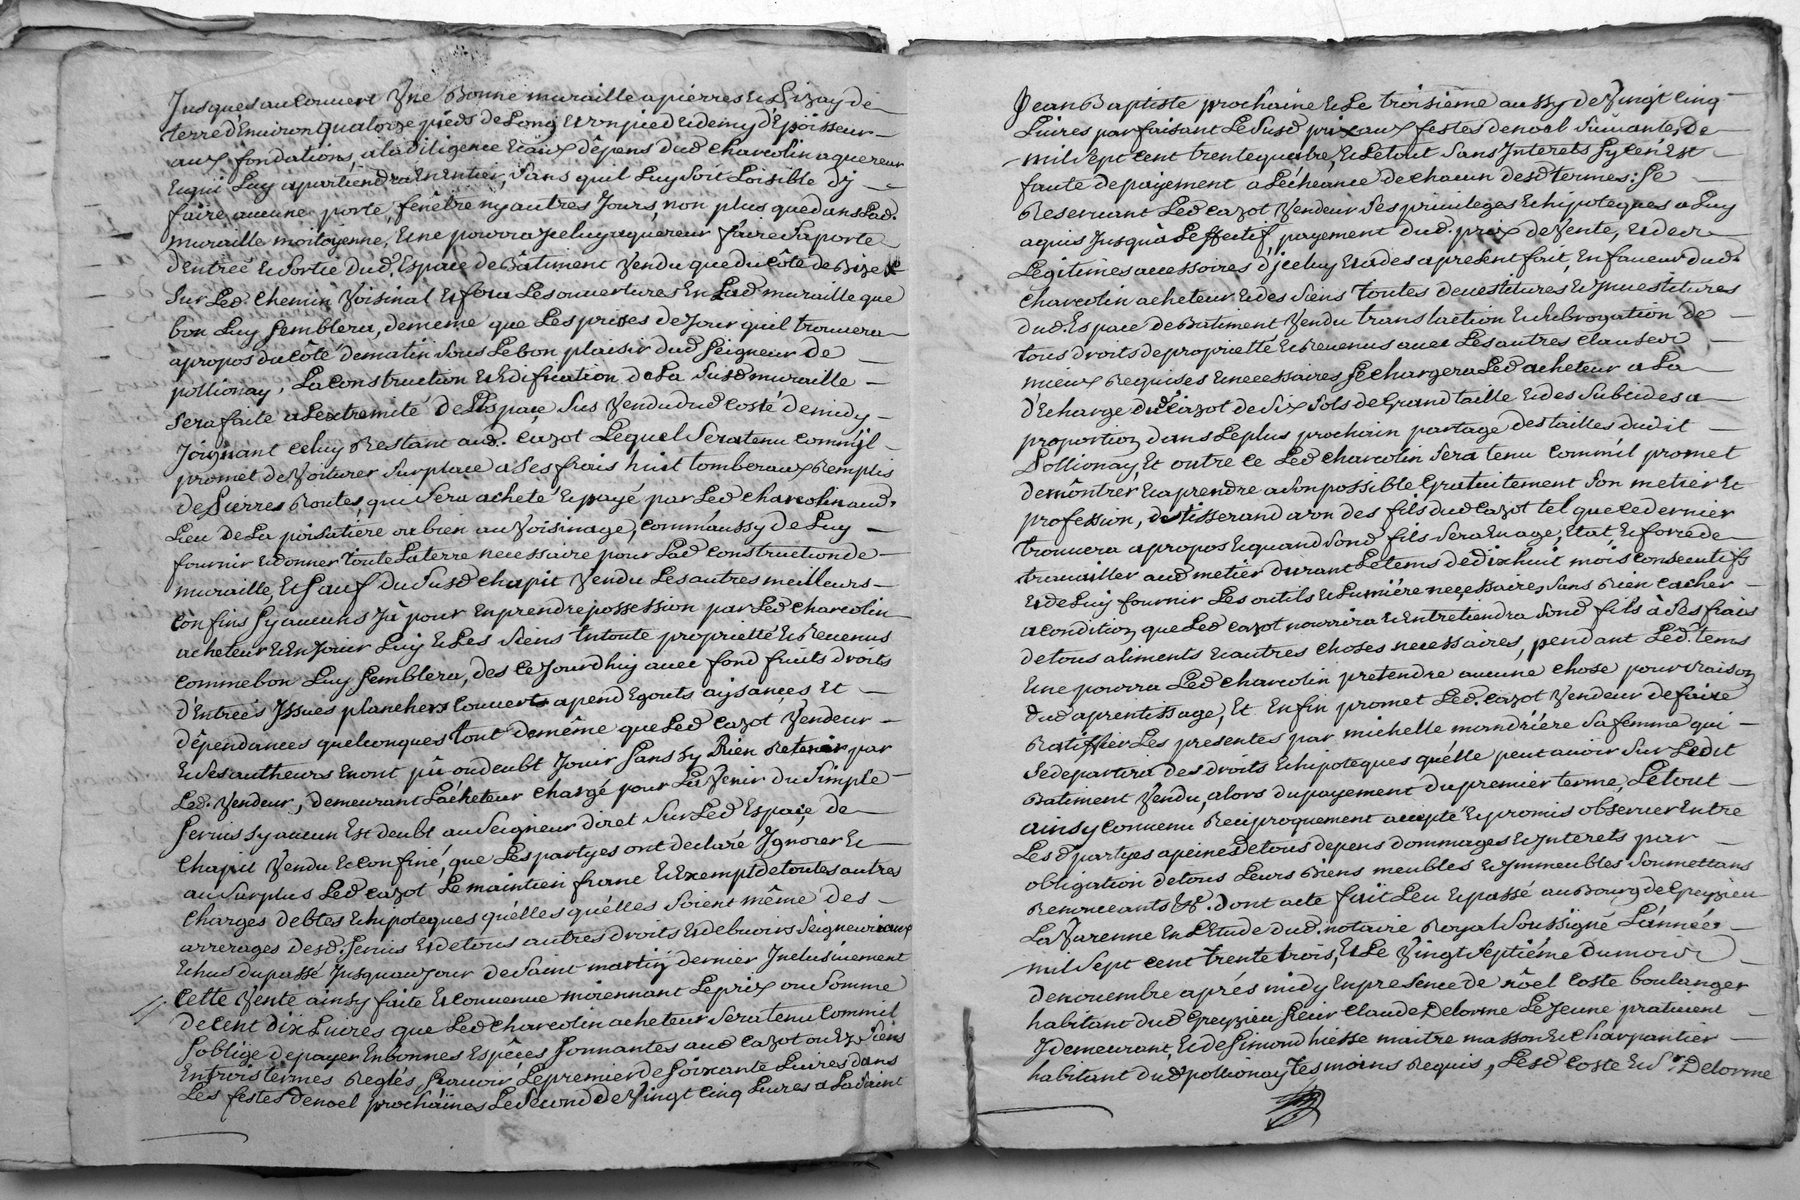 Jusques au Couvert Une Bonne muraille a pierres et Pizay de
terre d'Environ quatorze pieds de Long et un pied et demy d'Epôisseur
aux fondations, a la diligence et aux dêpens dud charcolin aquereur
et qui Luy apartiendra En Entier, sans quil Luy soit Loisible d'y
faire aucune porte, fenêtre ny autres Jours, non plus que dans Lad.
muraille moitoyenne, Et ne pourra Jceluy aquereur faire sa porte
d'Entrée et sortie dud. Espace de Bâtiment Vendu que du côté de Bize et
sur Led. chemin Voisinal et fera Les ouvertures En Lad muraille que
bon Luy semblera, de meme que Les prises de Jour qu'il trouvera
apropos du côté de matin sous Le bon plaisir dud seigneur de
pollionay, La construction et Edification de La susd muraille
sera faite a L'extremité de L'Espace sus Vendu dud costé de midy
Joignant celuy Restant aud. Cazot Lequel sera tenu comm'jl
promet de Voiturer sur place a ses frais huit tombereaux Remplis
de Pierres Routes, qui sera acheté et payé par Led Charcolin aud.
Lieu de La poisatiere ou bien au Voisinage, comm'aussy de Luy
fournir et donner toute La terre necessaire pour Lad construction de
muraille, Et sauf du susd chapit Vendu Les autres meilleurs
confins sy aucuns Jl y a pour En prendre possession par Led charcolin
acheteur et En Jouir Luy et Les siens En toute proprietté et Revenus
comme bon Luy semblera, des ce Jourdhuy avec fond fruits droits
d'Entrées Jssues planchers Couverts apend Egouts aysances, et
dépendances quelconques tout de même que Led Cazot Vendeur
et ses autheurs En ont pû ou deubt Jouir sans sy Rien Retenir par
Led. Vendeur, demeurant L'acheteur chargé pour L'a Venir du simple
servis sy aucun Est deubt au seigneur direct sur Led Espace de
chapit Vendu et confiné, que Les partyes ont declaré Jgnorer et
au surplus Led Cazot Le maintien franc et Exempt de toutes autres
charges debtes et hipoteques qu'elles qu'elles soient même des
arrerages desd. servis et de tous autres droits et debvoirs seigneuriaux
Echus du passé Jusqu'au Jour de saint martin dernier Jnclusivement
Cette Vente ainsy faite et Convenue moiennant Le prix ou somme
de cent dix Livres que Led charcolin acheteur sera tenu Comm'il
s'oblige de payer En bonnes Espêces sonnantes aud Cazot ou Ez siens
En trois termes Reglés, sçavoir, Le premier de soixante Livres dans
Les festes de noel prochaines Le second de Vingt Cinq Livres a La saint
Jean Baptiste prochaine et Le troisième aussy de Vingt Cinq
Livres parfaisant Le susd prix aux festes de noel suivantes, de
mil sept cent trente quatre, et Le tout sans Jnterets sy ce n'Est
faute de payement a L'écheance de chacun desd termes: se
Reservant Led Cazot Vendeur ses privileges et hipoteques a Luy
aquis Jusqu'à L'effectif payement dud. prix de Vente, et de ses
Legitimes accessoires d'jceluy et a des apresent fait, En faveur dud.
charcolin acheteur et des siens toutes devestitures et Jnvestitures
dud. Espace de Batiment Vendu translaction et subrogation de
tous droits de proprietté et Revenus avec Les autres clauses
mieux Requises et necessaires se chargera Led acheteur a La
d'Echarge dud Cazot de six sols de Grand taille et des subcides a
proportion dans Le plus prochain partage des tailles dudit
Pollionay, Et outre ce Led charcolin sera tenu comm'il promet
demôntrer et aprendre a son possible Gratuitement son metier et
profession, de tisserand a un des fils dud Cazot tel que ce dernier
trouvera apropos et quand sond fils sera En age, Etat, et force de
travailler aud metier durant Le tems de dix huit mois consecutifs
et de Luy fournir Les outils et Lumiére necessaires, sans Rien cacher
a condition que Led Cazot nourrira et Entretiendra sond fils à ses frais
de tous aliments et autres choses necessaires, pendant Led. tems
Et ne pourra Led Charcolin pretendre aucune chose pour Raison
dud aprentissage, Et Enfin promet Led. Cazot Vendeur de faire
Ratiffier Les presentes par michelle mondriére sa femme qui
se departira des droits et hipoteques qu'elle peut avoir sur Ledit
Batiment Vendu, alors du payement du premier terme, Le tout
ainsy Convenu Reciproquement accepté et promis observer Entre
Lesd partyes a peines de tous depens dommages et Jnterets par
obligation de tous Leurs Biens meubles et Jmmeubles soumettans
Renonceants &. dont acte fait Leu et passé au Bourg de Grezieu
La Varenne En L'Etude dud. notaire Royal soussigné L'année
mil sept cent trente trois, et Le Vingt septiéme du mois
de novembre aprés midy En presence de nöel Coste boulanger
habitant dud Grezieu sieur Claude Delorme Le Jeune praticient
J demeurant, et de simond hiesse maitre masson et Charpantier
habitant dud pollionay tesmoins Requis, Lesd Coste et Sr. Delorme